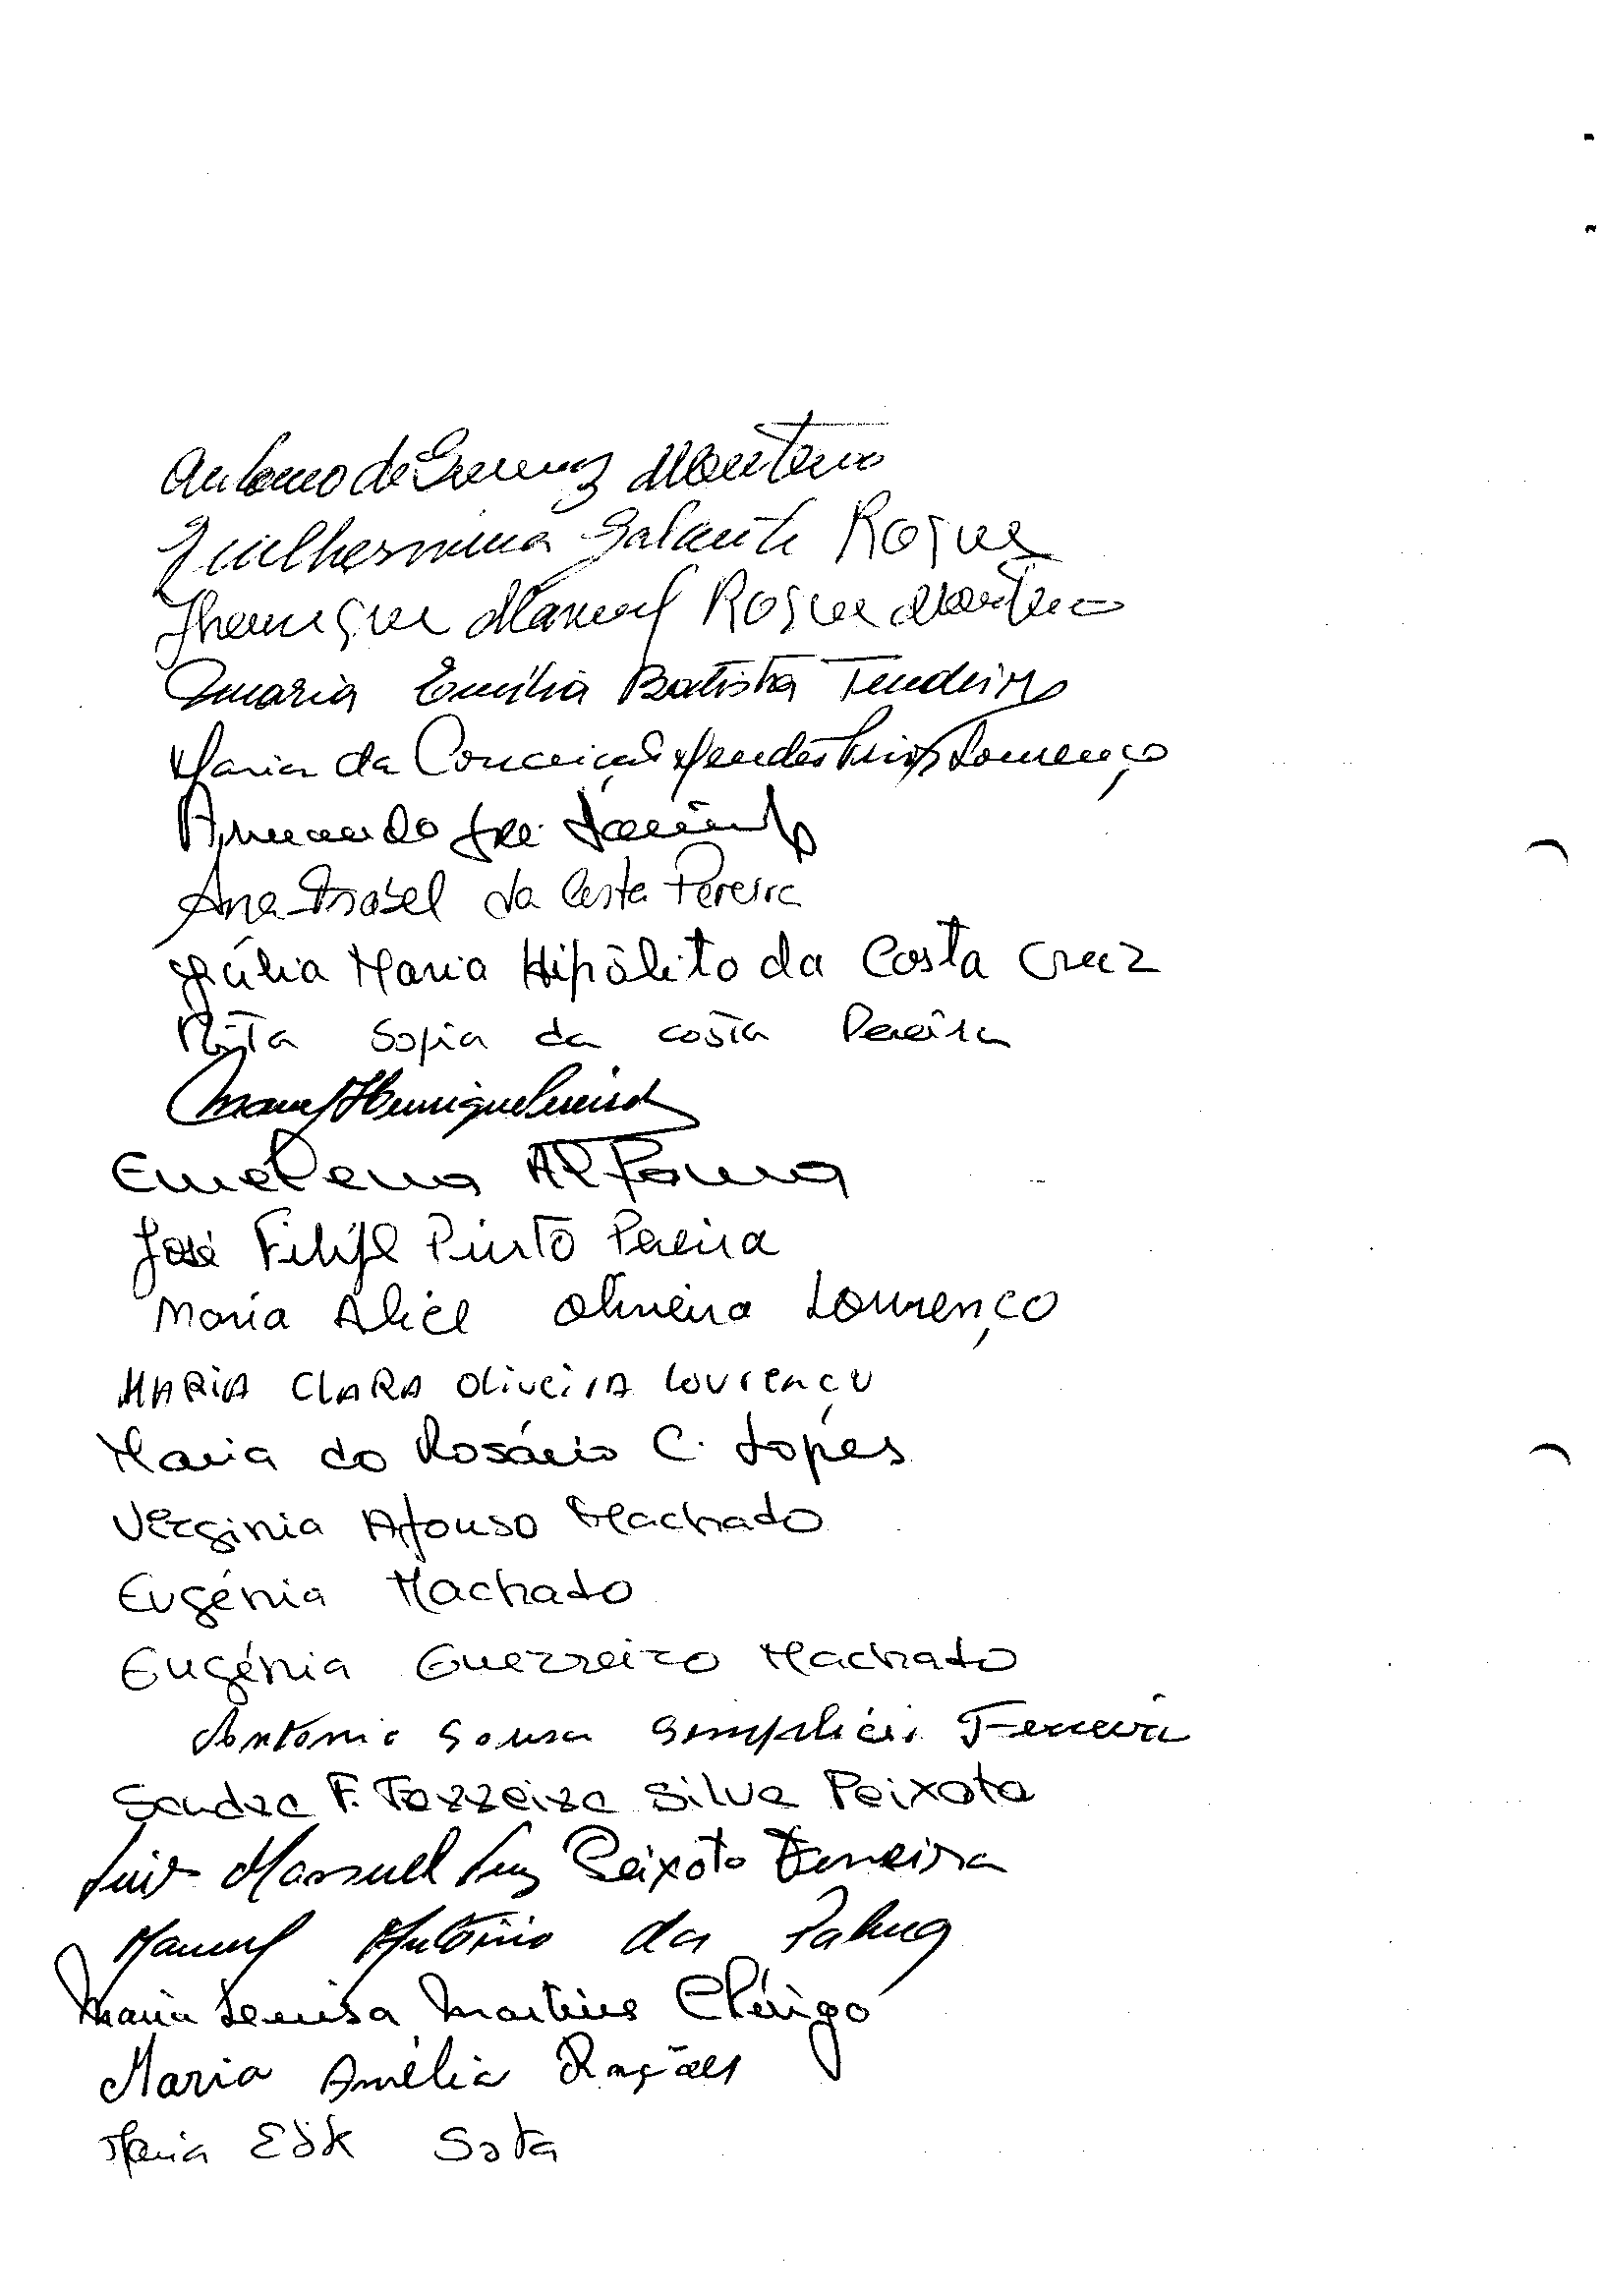 António de Monteiro
Guilhermina Galante Roque
Manuel Roque Monteiro
Maria Emília Batista Tendeiro
Maria da Conceição Mendes Lourenço
Armando José
Ana Isabel da Costa Pereira
Júlia Maria Hipólito da Costa Cruz
Rita Sofia da Costa Pereira
Manuel Henrique Pereira
José Filipe Pinto Pereira
Maria Alice Oliveira Lourenço
MARIA CLARA Oliveira Lourenço
Maria do Rosário C. Lopes
Verginia Afonso Machado
Eugénia Machado
Eugénia Guerreiro Machado
António Sousa Ferreira
Sandra F. Ferreira Silva Peixoto
Luis Manuel Luz Peixoto Ferreira
Manuel António da Palma
Maria Martins Clérigo
Maria Amélia
Maria Sota